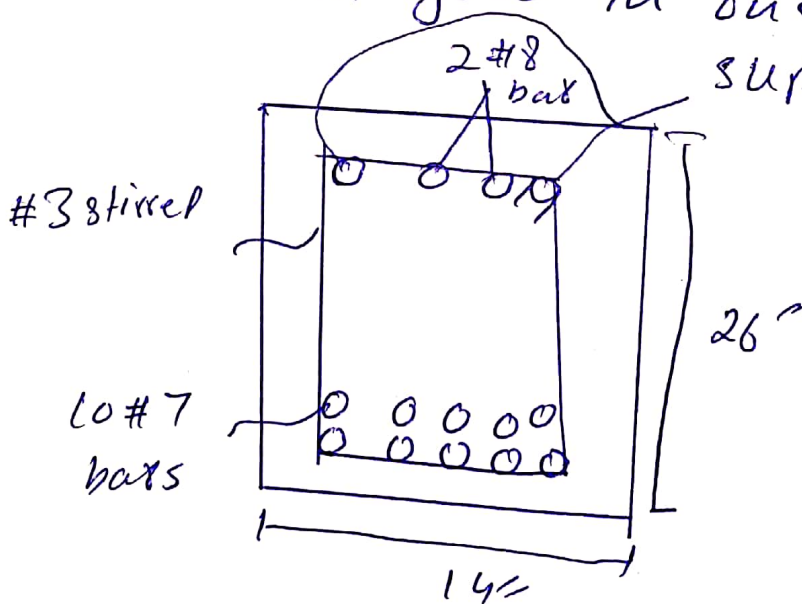 in
2 #8
bar
#3 stirrep
26"
10 #7
bars
14"